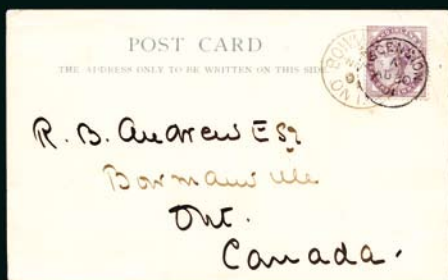 POST CARD
THE ADDRESS ONLY TO BE WRITTEN ON THIS SIDE
ASCENSION
R. B. Andrew Esq
Bowmanville
Ont.
Canada.